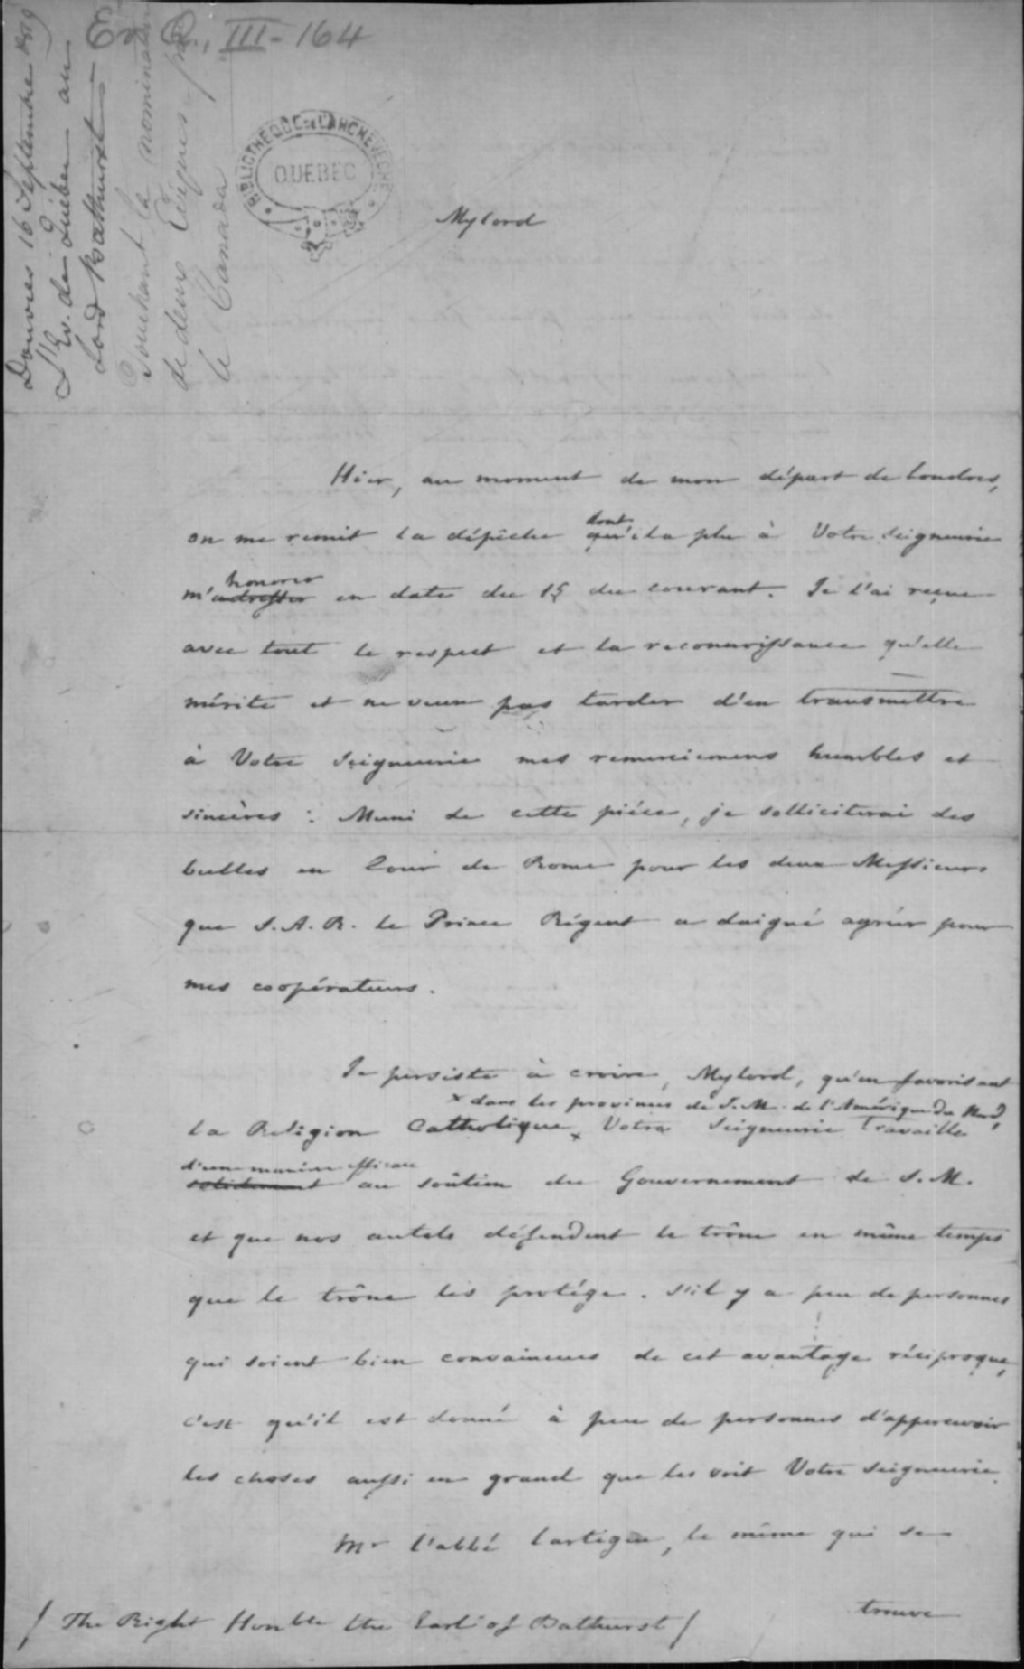 Ev. Q., III - 164
Douvres 16 Septembre 1819
L'Ev. de Québec au
Lord Bathurst
Touchant la nomination
de deux Evêques pour
le Canada
BIBLIOTHÈQUE DE L'ARCHEVÊCHÉ
QUÉBEC
Mylord
Hier, au moment de mon départ de Londres,
dont
on me remit la dépêche qu'il a plu à Votre Seigneurie
honorer
m'adresser en date du 15 du courant. Je l'ai reçue
avec tout le respect et la reconnaissance qu'elle
mérite et ne veux pas tarder d'en transmettre
à Votre Seigneurie mes remerciemens humbles et
sincères : Muni de cette pièce, je solliciterai des
bulles en Cour de Rome pour les deux Messieurs
que S. A. R. le Prince Régent a daigné agréer pour
mes coopérateurs.
Je persiste à croire, Mylord, qu'en favorisant
x dans les provinces de S. M. de l'Amérique du Nord,
la Religion Catholique x Votre Seigneurie travaille
d'une manière efficace
solidement au soûtien du Gouvernement de S. M.
et que nos autels défendent le trône en même temps
que le trône les protége. S'il y a peu de personnes
qui soient bien convaincues de cet avantage réciproque,
c'est qu'il est donné à peu de personnes d'appercevoir
les choses aussi en grand que les voit Votre Seigneurie.
Mr l'abbé Lartigue, le même qui se
trouve
/ The Right Honble the Earl of Bathurst /